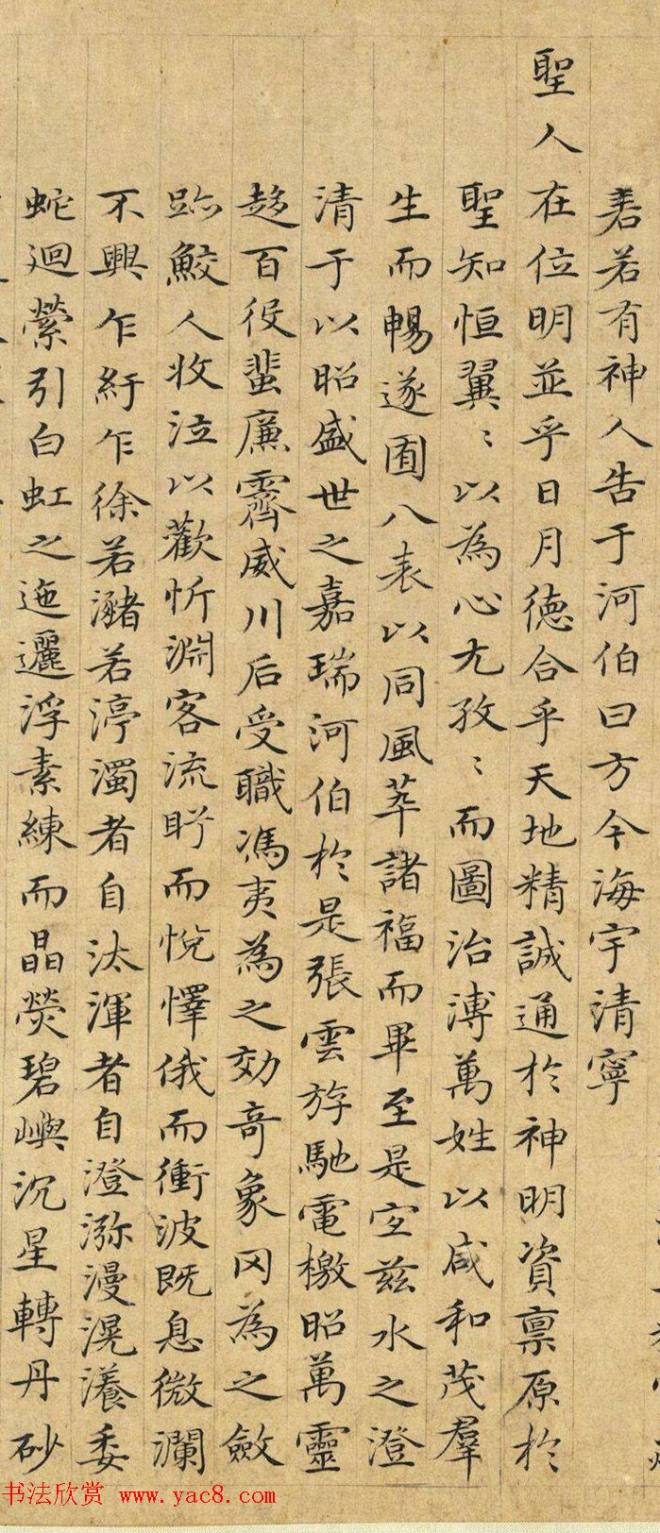 砉若有神人告于河伯曰方今海宇清寧
聖人在位明並乎日月德合乎天地精誠通於神明資禀原於
聖知恒翼〻以為心尤孜〻而圖治溥萬姓以咸和茂羣
生而暢遂囿八表以同風萃諸福而畢至是宜兹水之澄
清于以昭盛世之嘉瑞河伯於是張雲斿馳電檄昭萬靈
趍百役蜚廉霽威川后受職馮夷為之効奇象罔為之斂
跡鮫人收泣以歡忻淵客流盱而悅懌俄而衝波既息微瀾
不興乍紆乍徐若瀦若渟濁者自汰渾者自澄瀰漫滉瀁委
蛇迴縈引白虹之迤邐浮素練而晶熒碧嶼沉星轉丹砂
书法欣赏 www.yac8.com